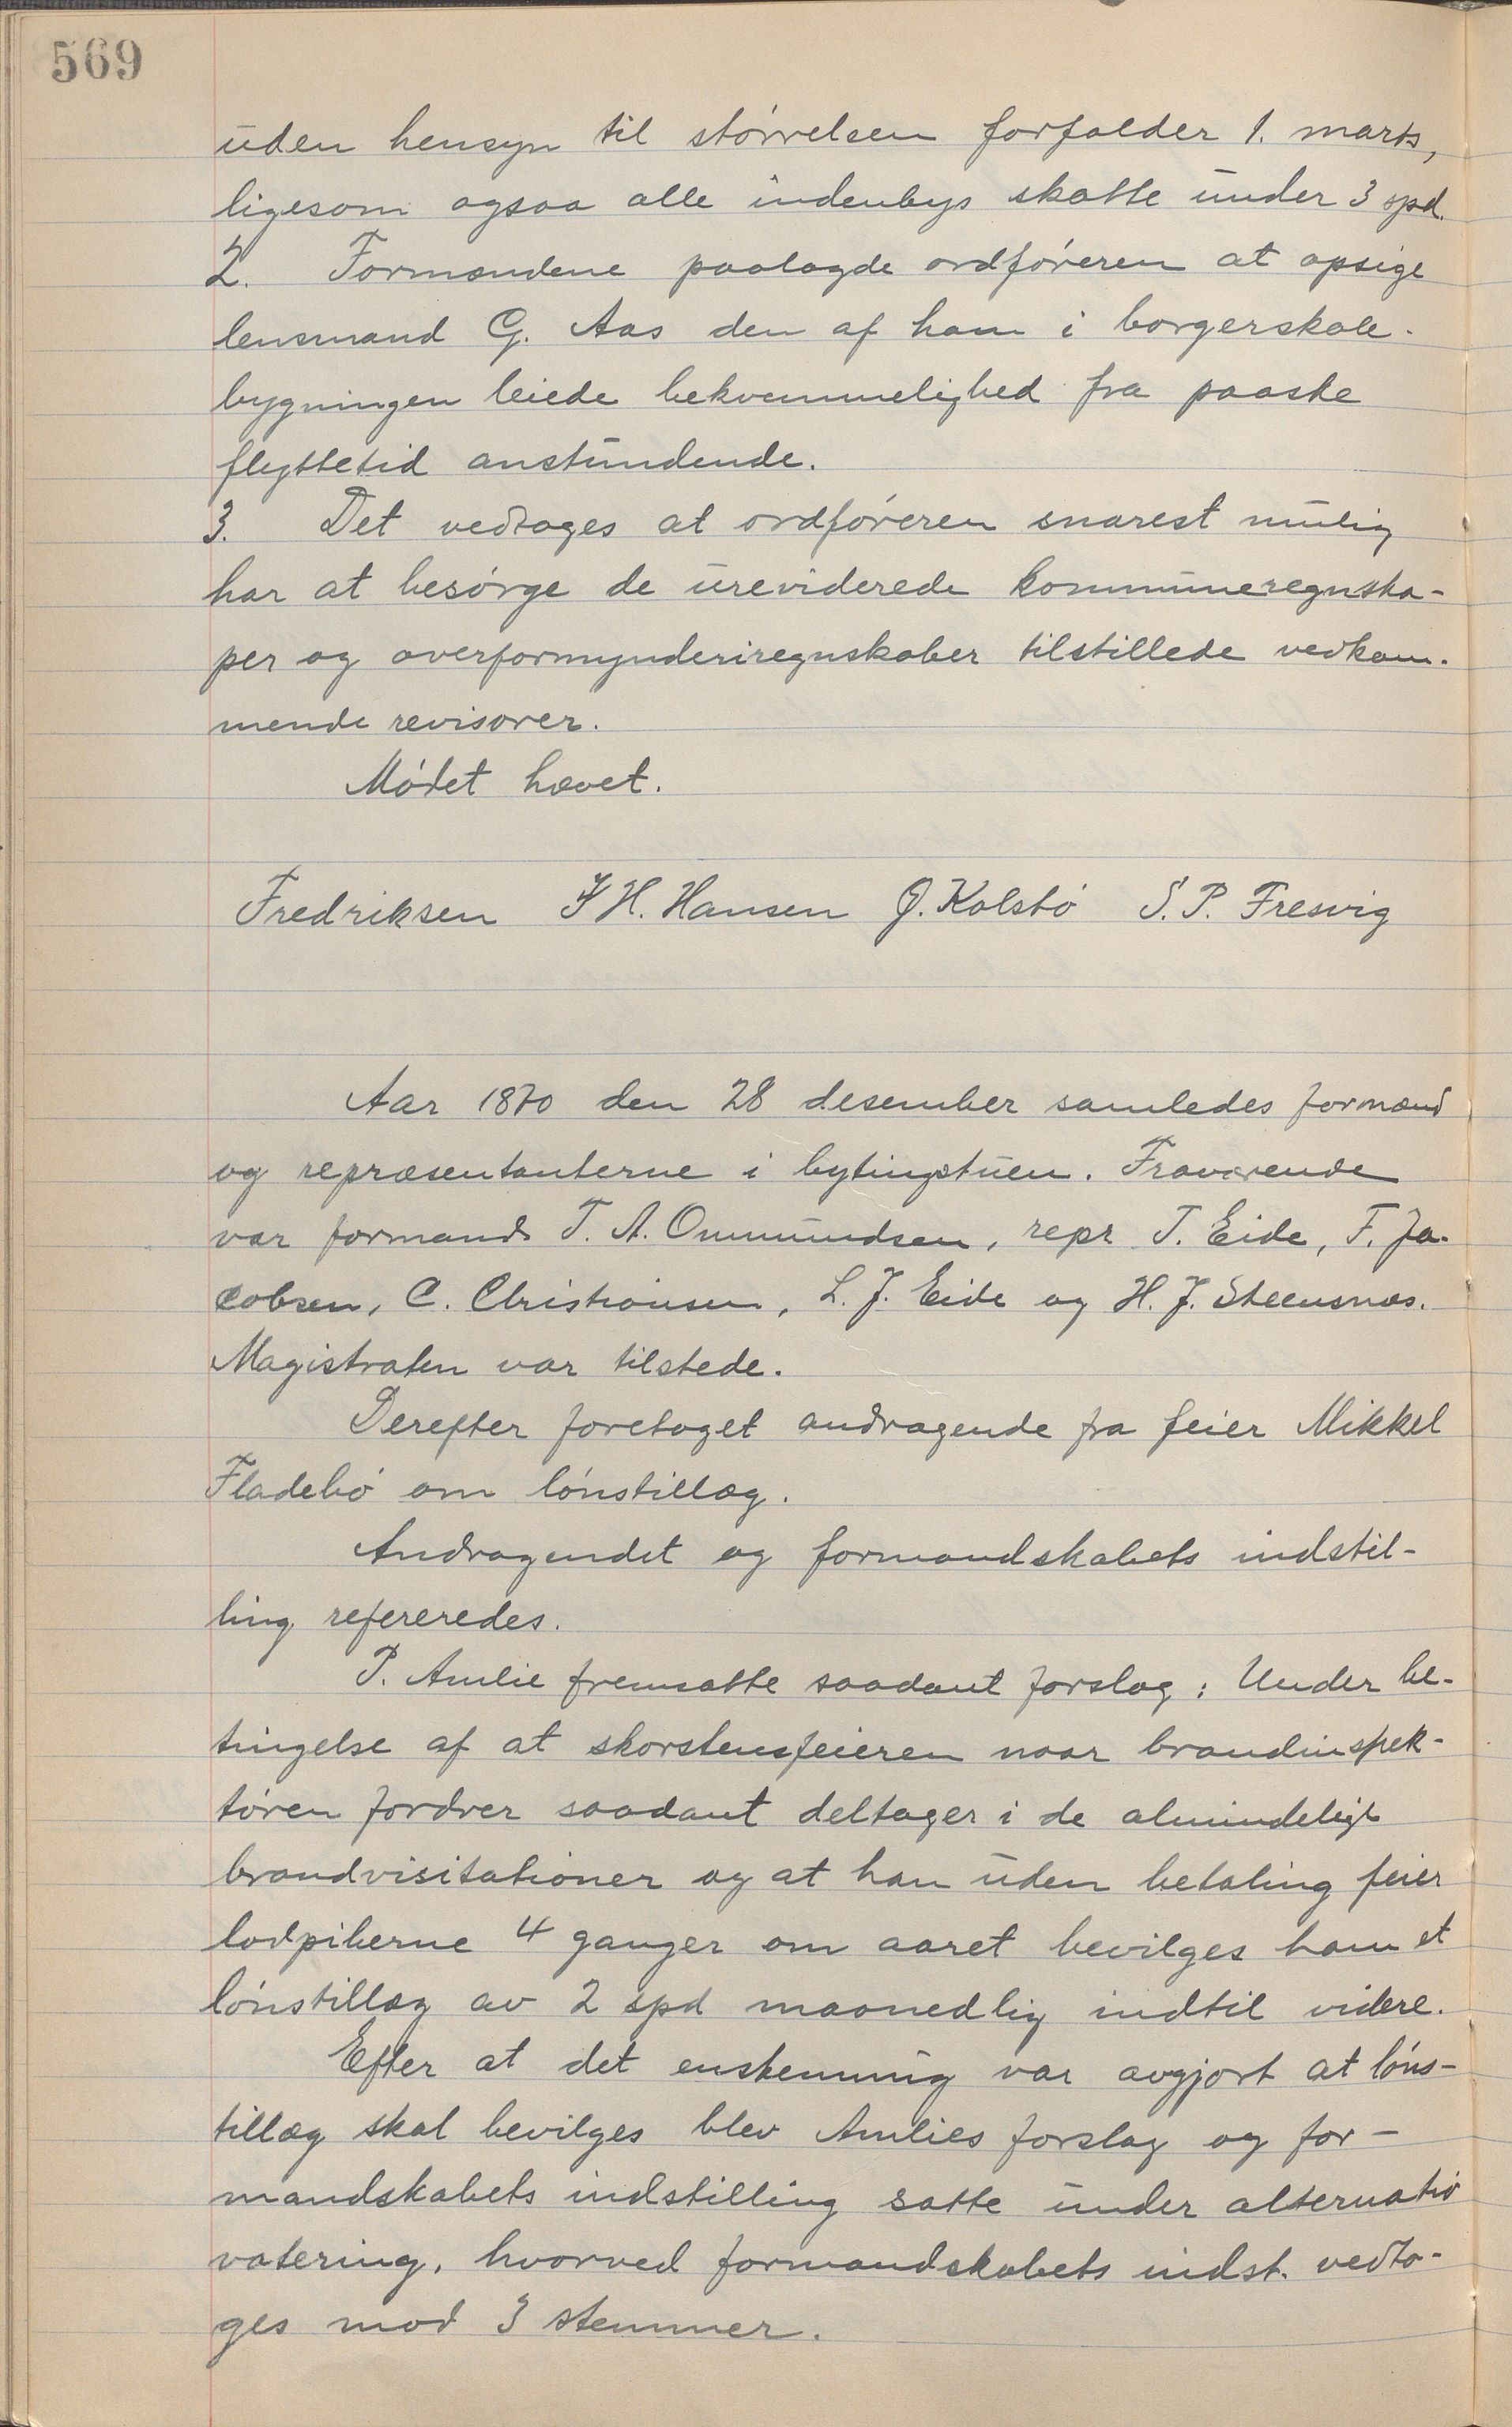 569
uden hensyn til størrelsen forfalder 1. marts,
ligesom ogsaa alle indenbys skatte under 3 spd.
2. Formændene paalagde ordføreren at opsige
lensmand G. Aas den af ham i borgerskole-
bygningen leiede bekvemmelighed fra paaske
flyttetid anstundende.
3. Det vedtoges at ordføreren snarest mulig
har at besørge de ureviderede kommuneregnska-
per og overformynderiregnskaber tilstillede vedkom-
mende revisorer.
Mødet hævet.
Fredriksen J H. Hansen J. Kolstø S. P. Fresvig
Aar 1870 den 28 desember samledes formænd
og repræsentanterne i bytingstuen. Fraværende
var formand T. A. Ommundsen, repr T. Eide, F. Ja-
cobsen, C. Christiansen, L. J. Eide og H. J. Steensnæs.
Magistraten var tilstede.
Derefter foretaget andragende fra feier Mikkel
Fladebø om lønstillæg.
Andragendet og formandskabets indstil-
ling refereredes.
P. Amlie fremsatte saadant forslag: Under be-
tingelse af at skorstensfeieren naar brandinspek-
tøren fordrer saadant deltager i de almindelige
brandvisitationer og at han uden betaling feier
lodpiberne 4 ganger om aaret bevilges ham et
lønstillæg av 2 spd maanedlig indtil videre.
Efter at det enstemmig var avgjort at løns-
tillæg skal bevilges blev Amlies forslag og for-
mandskabets indstilling satte under alternativ
votering, hvorved formandskabets indst. vedto-
ges mod 3 stemmer.